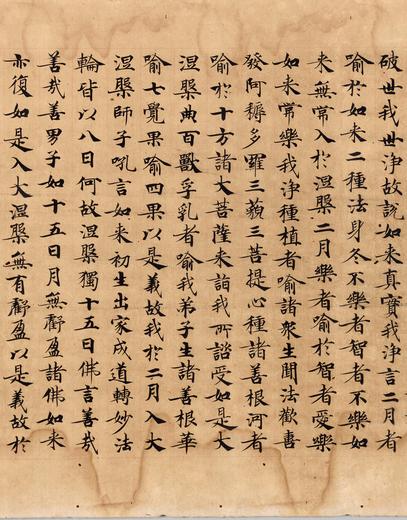 破世我世淨故說如来真實我淨言二月者
喻於如来二種法身冬不樂者智者不樂如
来無常入於涅槃二月樂者喻於智者愛樂
如来常樂我淨種植者喻諸衆生聞法歡喜
發阿耨多羅三藐三菩提心種諸善根河者
喻於十方諸大菩薩来詣我所諮受如是大
涅槃典百獸孚乳者喻我弟子生諸善根華
喻七覺果喻四果以是義故我於二月入大
涅槃師子吼言如来初生出家成道轉妙法
輪皆以八日何故涅槃獨十五日佛言善哉
善哉善男子如十五日月無虧盈諸佛如来
亦復如是入大涅槃無有虧盈以是義故於